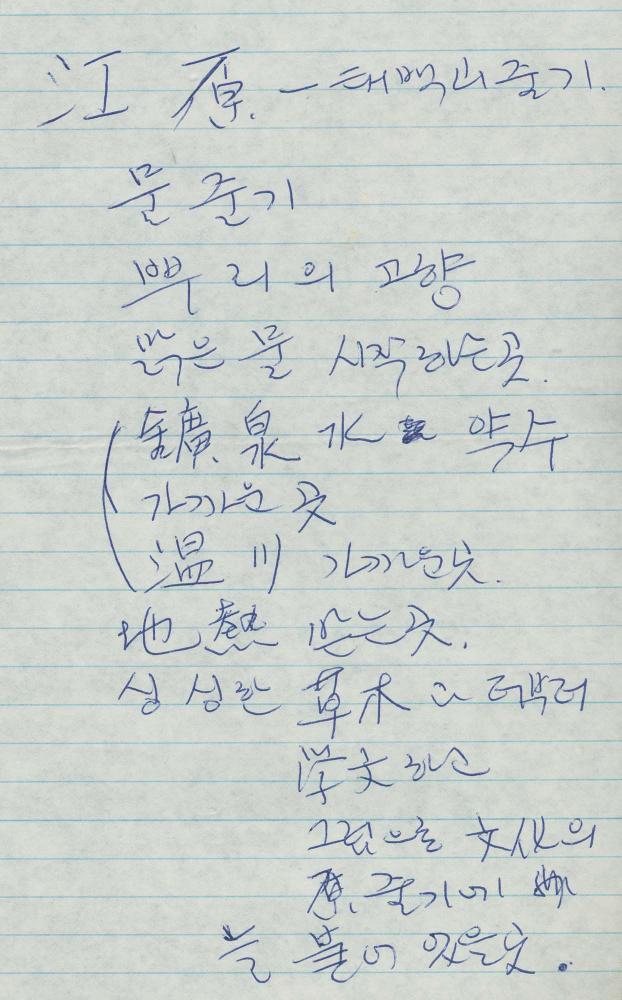 江原 - 태백의 줄기.
물 줄기
뿌리의 고향
맑은 물 시작하는곳.
鑛泉水 약수
가까운 곳
温川 가까운곳.
地熱 받는곳.
싱싱한 草木과 더부터
学文하고
그림으로 文化의
原.줄기에
늘 붙어 있을곳.